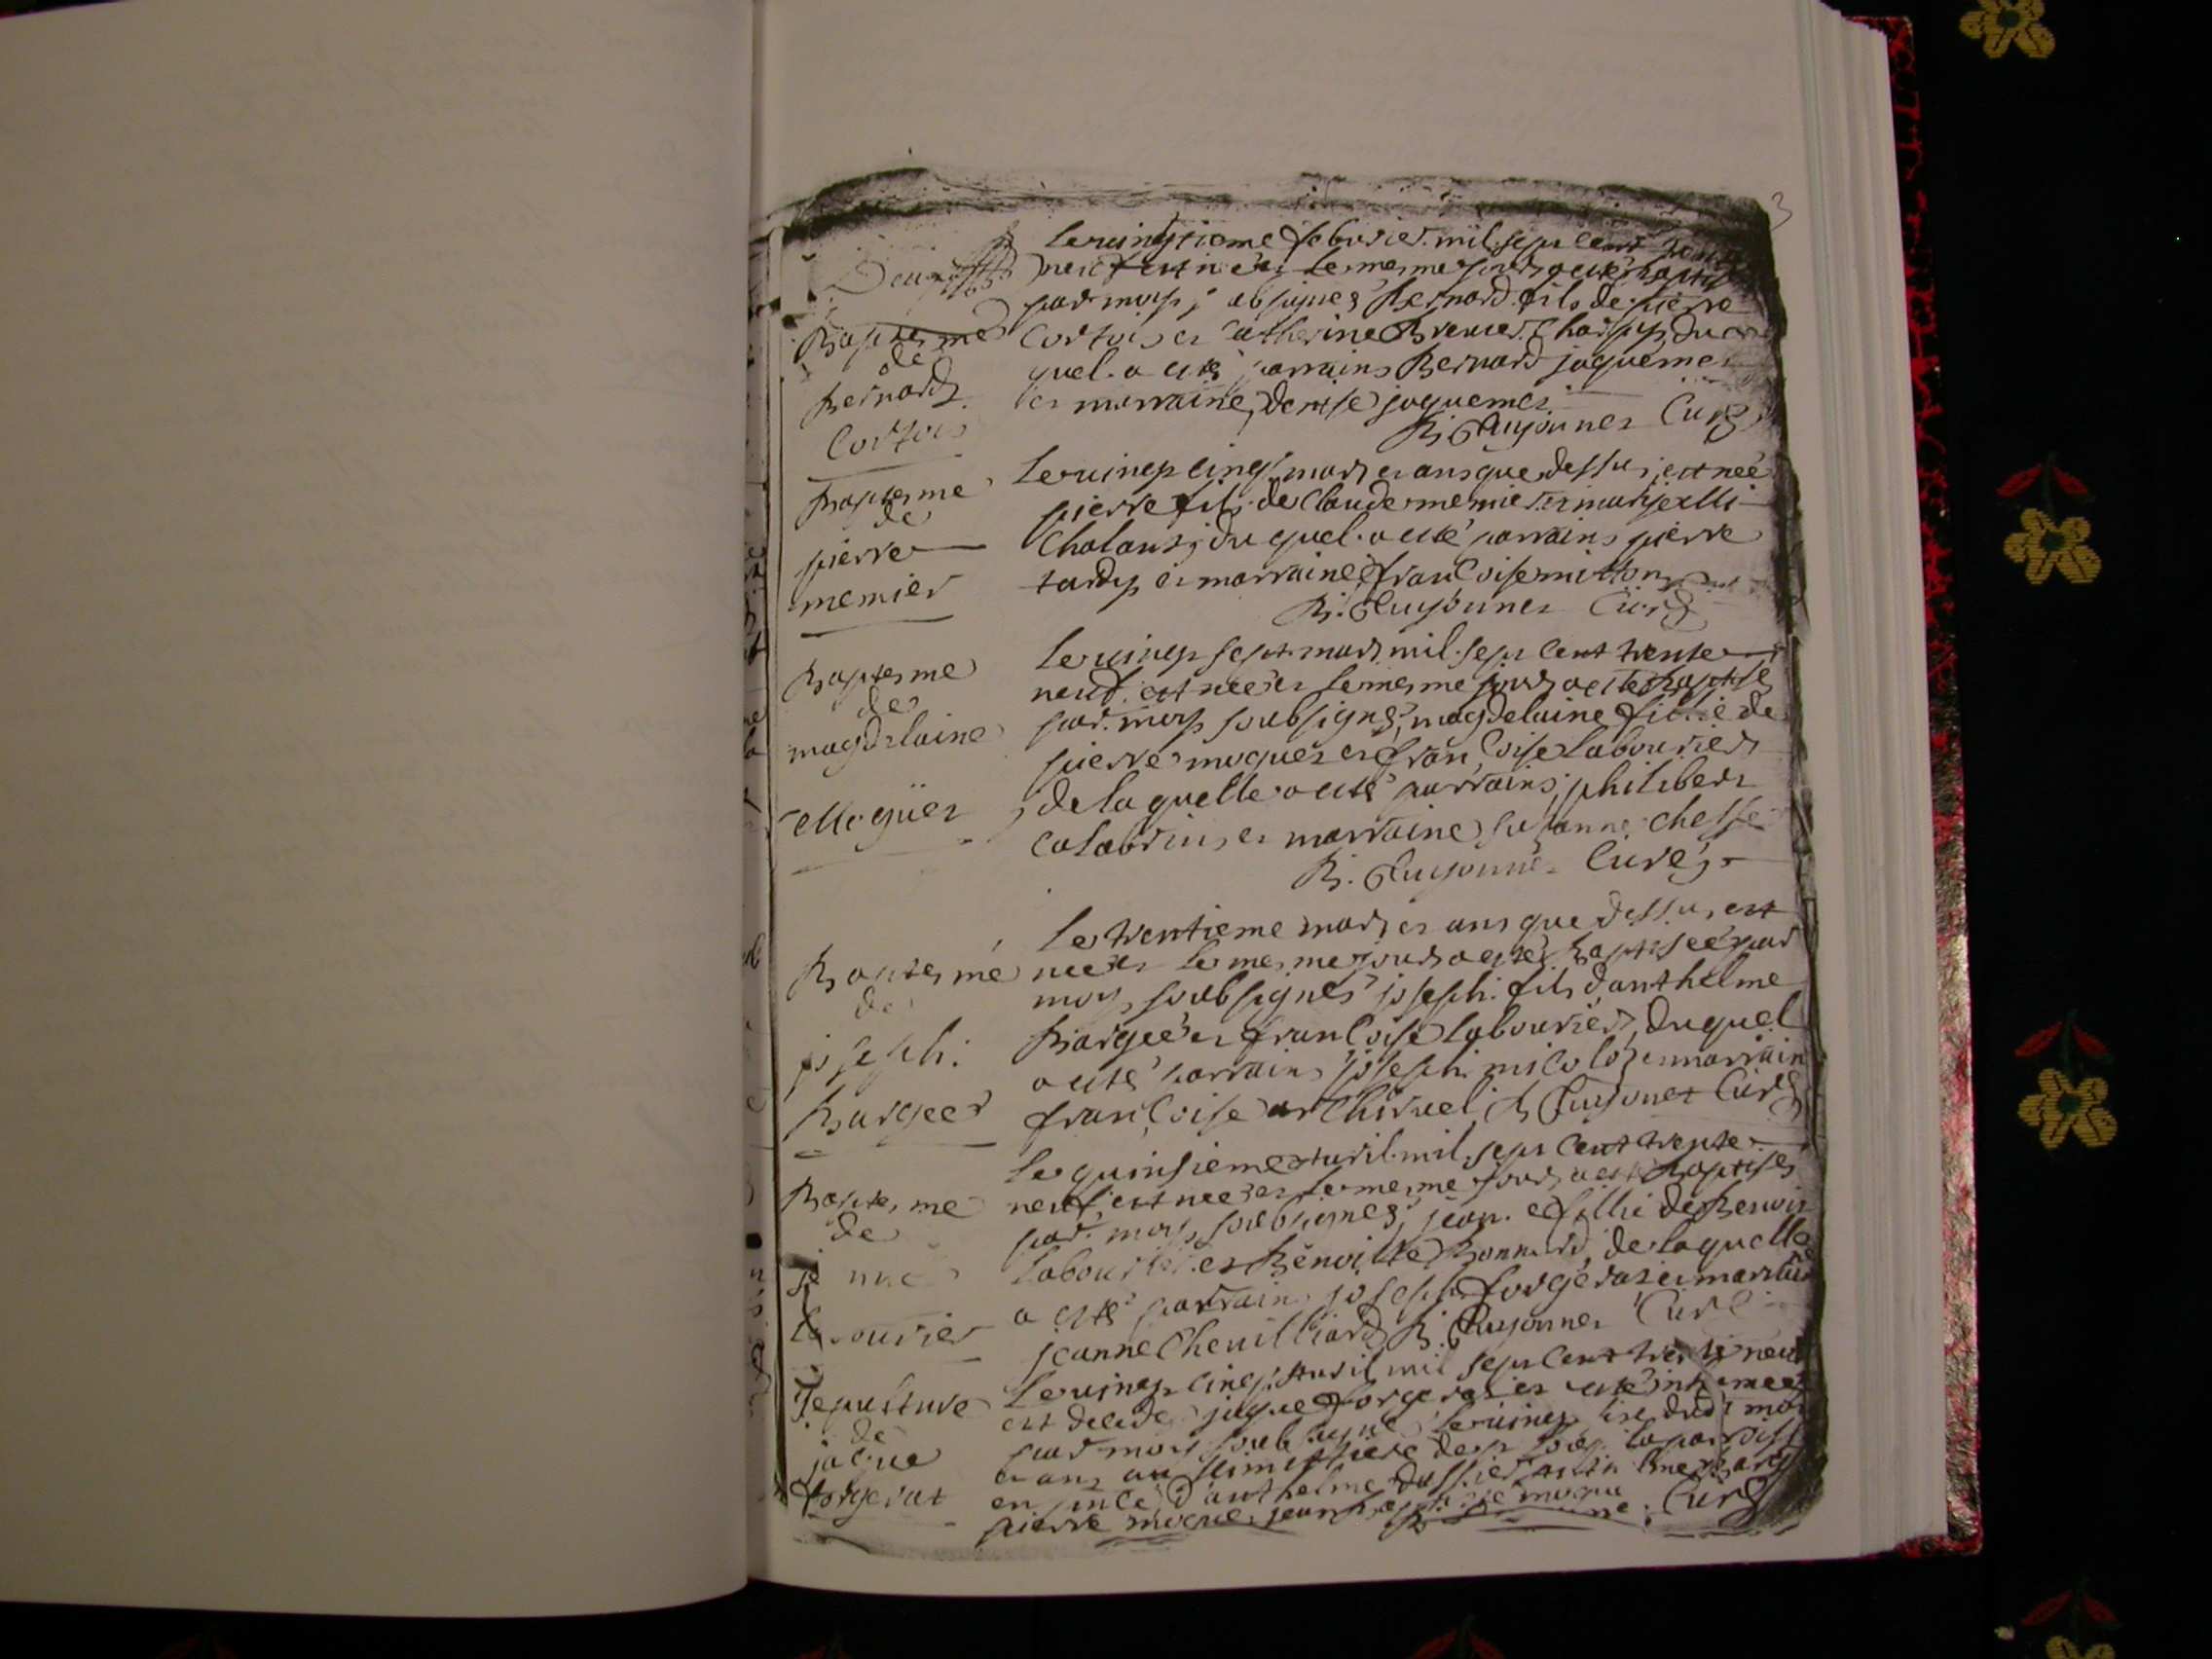 3
Le vingtieme febvrier mil sept cent trente
neuf est née et le mesme jour a esté baptisé
par moy subsigné Bernard fils de pierre
Cortois et Catherine Brevet Charpy du
quel a esté parrains Bernard jaquemet
et marraine denise jaquemet
R. Guyonnet Curé
Baptesme
de
Bernard
Cortois
Le vingt cinq mars et ans que dessus est née
pierre fils de Claude memier et
Chalant duquel a esté parrains pierre
tardy et marraine francoise mitton
R. Guyonnet Curé
Baptesme
de
pierre
memier
Le vingt sept mars mil sept cent trente
neuf est née et le mesme jour a esté baptisé
par moy soubsigné, magdelaine fillie de
pierre moquet et francoise labourier
de laquelle a esté parrains philibert
Calabrin et marraine susanne chesse
R. Guyonnet Curé
Baptesme
de
magdelaine
Moquet
Le trentieme mars et ans que dessus est
née et le mesme jour a esté baptisée par
moy soubsigné joseph fils d'anthelme
Bargee et francoise labourier, duquel
a esté parrains joseph micolo et marrain
francoise archiruel R Guyonet Curé
Baptesme
de
joseph
Bargeet
Le quinsieme avril mil sept cent trente
neuf est née et le mesme jour a esté baptisé
par moy soubsigné, jeanne fillie de Benoit
labourier et Benoitte Bonnard, de laquelle
a esté parrain joseph forgerat et marraine
jeanne Chevilliard R. Guyonnet Curé
Baptesme
de
labourier
Le vingt cinq avril mil sept cent trente neuf
est decedé jaque forgerat et a esté inhumé
par moy soubsigné le vingt six dudit mois
et ans au cimetiere de la paroisse
en pnce d'anthelme
pierre moquet jean Curé
Sepulture
de
jaque
forgerat